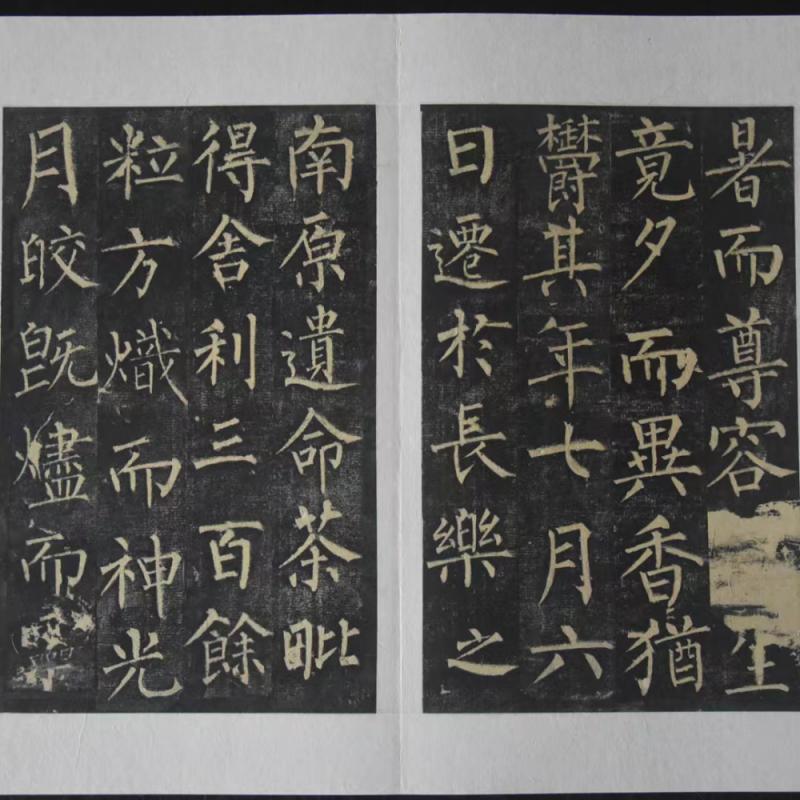 暑而尊容生
竟夕而異香猶
欝其年七月六
日遷於長樂之
南原遺命茶毗
得舍利三百餘
粒方熾而神光
月皎既燼而靈